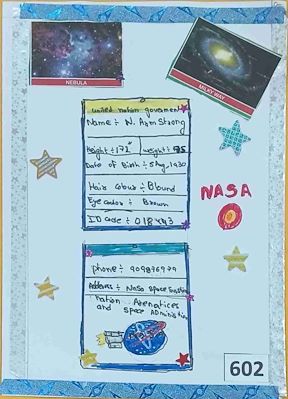 NEBULA
MILKY WAY
united nation government
Name ÷ N. Armstrong
Height ÷ 172
weight ÷ 75
Date of Birth ÷ 5 Aug, 1930
Hair colour ÷ Blound
Eye color ÷ Brown
ID code ÷ 018443
NASA
Phone ÷ 909876979
Address ÷ Nasa space
nation
and space
602